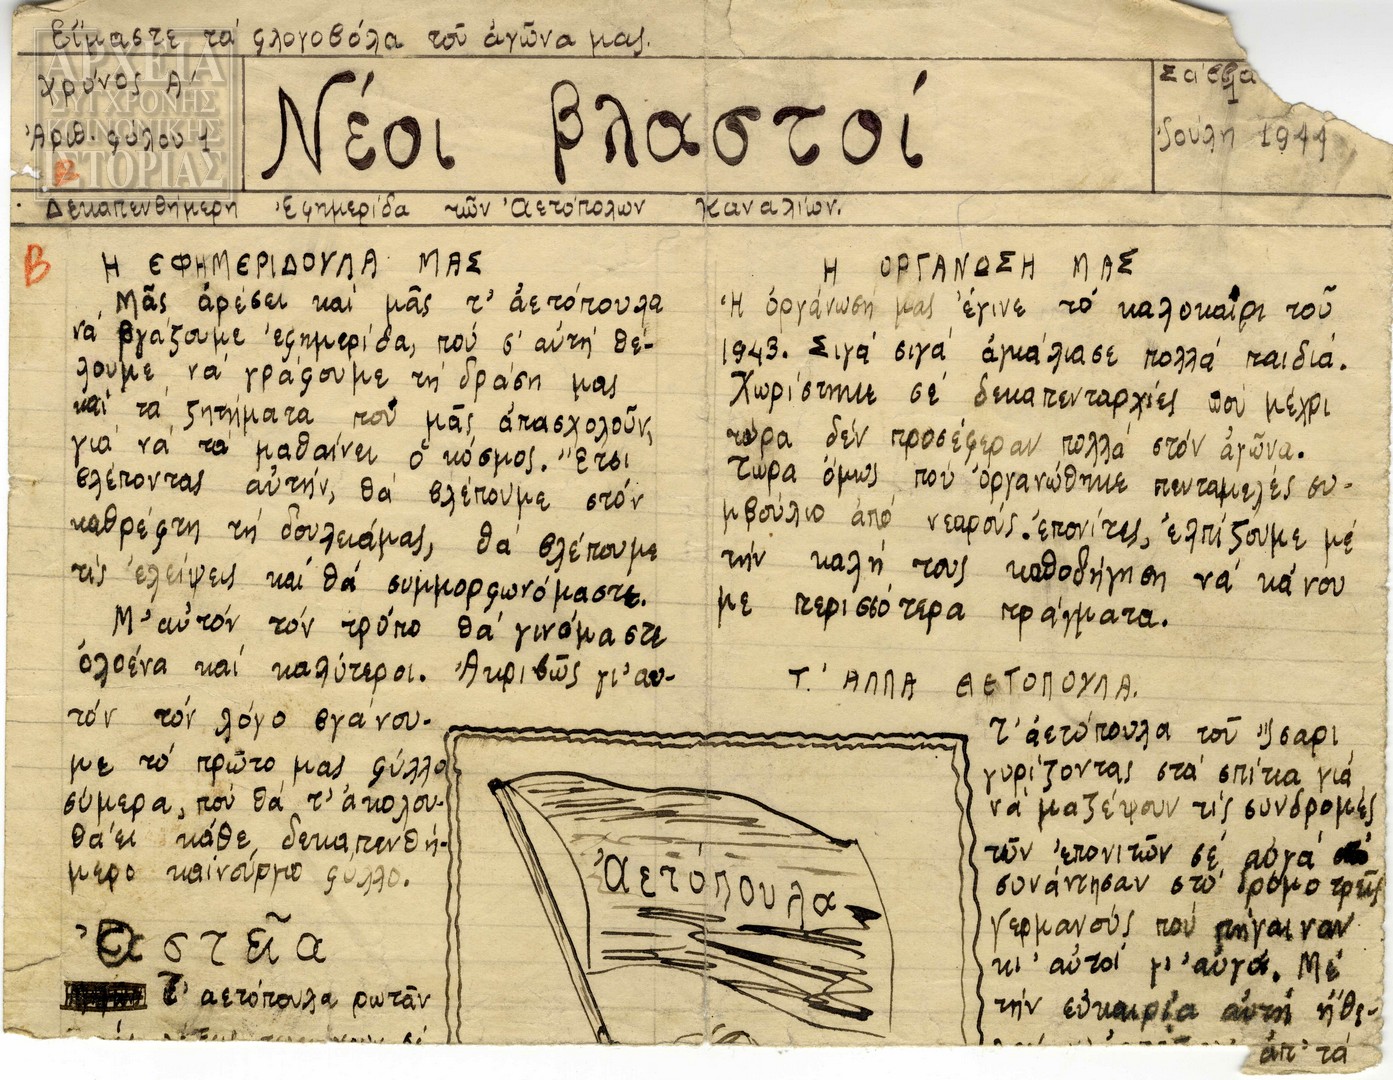 Εἴμαστε τά φλογοβόλα τοῦ ἀγῶνα μας.
ΑΡΧΕΙΑ
ΣΥΓΧΡΟΝΗΣ
ΚΟΙΝΩΝΙΚΗΣ
ΙΣΤΟΡΙΑΣ
Χρόνος Α΄
Ἀριθ. φύλου 1
Νέοι βλαστοί
Σάββα
Ἰούλη 1944
Δεκαπενθήμερη Ἐφημερίδα τῶν Ἀετόπολων Καναλίων.
Β
Η ΕΦΗΜΕΡΙΔΟΥΛΑ ΜΑΣ
Μᾶς ἀρέσει καί μᾶς τ' ἀετόπουλα
νά βγάζουμε ἐφημερίδα, πού σ' αὐτή θέ-
λουμε νά γράφουμε τή δράση μας
καί τά ζητήματα πού μᾶς ἀπασχολοῦν,
γιά νά τά μαθαίνει ὁ κόσμος. Ἔτσι
βλέποντας αὐτήν, θά βλέπουμε στόν
καθρέφτη τή δουλειάμας, θά βλέπουμε
τίς ἐλείψεις καί θά συμμορφωνόμαστε.
Μ' αὐτόν τόν τρόπο θά γινόμαστε
ὁλοένα καί καλύτεροι. Ἀκριβῶς γι' αυ-
τόν τόν λόγο βγάνου-
με τό πρῶτο μας φύλλο
σύμερα, πού θά τ' ἀκολου-
θάει κάθε δεκαπενθή-
μερο καινούργιο φύλλο.
Ἀστεῖα
Τ' αετόπουλα ρωτᾶν
Η ΟΡΓΑΝΩΣΗ ΜΑΣ
Ἡ ὀργάνωσή μας ἔγινε τό καλοκαῖρι τοῦ
1943. Σιγά σιγά ἀγκάλιασε πολλά παιδιά.
Χωρίστηκε σέ δεκαπενταρχίες πού μέχρι
τώρα δέν προσέφεραν πολλά στόν ἀγῶνα.
Τώρα ὅμως πού ὀργανώθηκε πενταμελές συ-
μβούλιο ἀπό νεαρούς ἐπονίτες, ἐλπίζουμε μέ
τήν καλή τους καθοδήγηση νά κάνου
με περισσότερα πράγματα.
Τ' ΑΛΛΑ ΑΕΤΟΠΟΥΛΑ.
Τ' ἀετόπουλα τοῦ Ἴσαρι
γυρίζοντας στά σπίτια γιά
νά μαζέψουν τίς συνδρομές
τῶν ἐπονιτῶν σέ αὐγά
συνάντησαν στό δρόμο τρεῖς
γερμανούς πού πήγαιναν
κι' αὐτοί γι' αὐγά. Μέ
τήν εὐκαιρία αὐτή ἤθε-
ἀπ' τά
Ἀετόπουλα